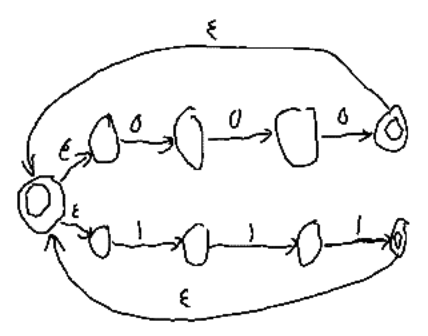 ε
ε 0 0 0
ε 1 1 1
ε